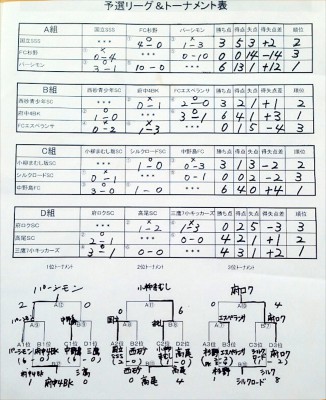 予選リーグ&トーナメント表
A組 国立SSS FC杉野 バーシモン 勝ち点 得点 失点 得失点差 順位
国立SSS ・・・ 4-0 1-3 3 5 3 +2 2
FC杉野 0-4 ・・・ 0-10 0 0 14 -14 3
バーシモン 3-1 10-0 ・・・ 6 13 1 +12 1
B組 西砂青少年SC 府中4BK FCエスペランサ 勝ち点 得点 失点 得失点差 順位
西砂青少年SC ・・・ 0-1 2-0 3 2 1 +1 2
府中4BK 1-0 ・・・ 3-1 6 4 1 +3 1
FCエスペランサ 0-2 1-3 ・・・ 0 1 5 -4 3
C組 小柳まむしSC シルクロードSC 中野島FC 勝ち点 得点 失点 得失点差 順位
・・・ 1-0 0-3 3 1 3 -2 2
シルクロードSC 0-1 ・・・ 0-1 0 0 2 -2 3
中野島FC 3-0 1-0 ・・・ 6 4 0 +4 1
D組 府ロクSC 高尾SC 三鷹7小キッカーズ 勝ち点 得点 失点 得失点差 順位
府ロクSC ・・・ 1-2 1-3 0 2 5 -3 3
高尾SC 2-1 ・・・ 0-0 4 2 1 +1 2
三鷹7小キッカーズ 3-1 0-0 ・・・ 4 3 1 +2 1
1位トーナメント 2位トーナメント 3位トーナメント
バーシモン 小柳まむし 府ロク
2 0 0 4
A1位 B1位 C1位 D1位 A2位 B2位 C2位 D2位 A3位 B3位 C3位 D3位
バーシモン 府中4BK 中野島 三鷹 国立 西砂 小柳まむし 高尾 杉野 エスペランサ シルクロード 府ロク
府中4BK 三鷹 西砂 高尾 杉野 シルクロード
1 0 0 4 1 8